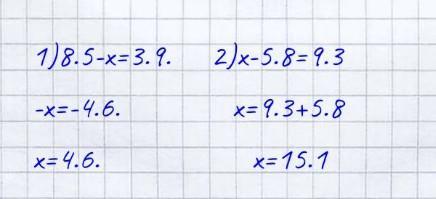 1) 8.5-x=3.9.
-x=-4.6.
x=4.6.
2) x-5.8=9.3
x=9.3+5.8
x=15.1